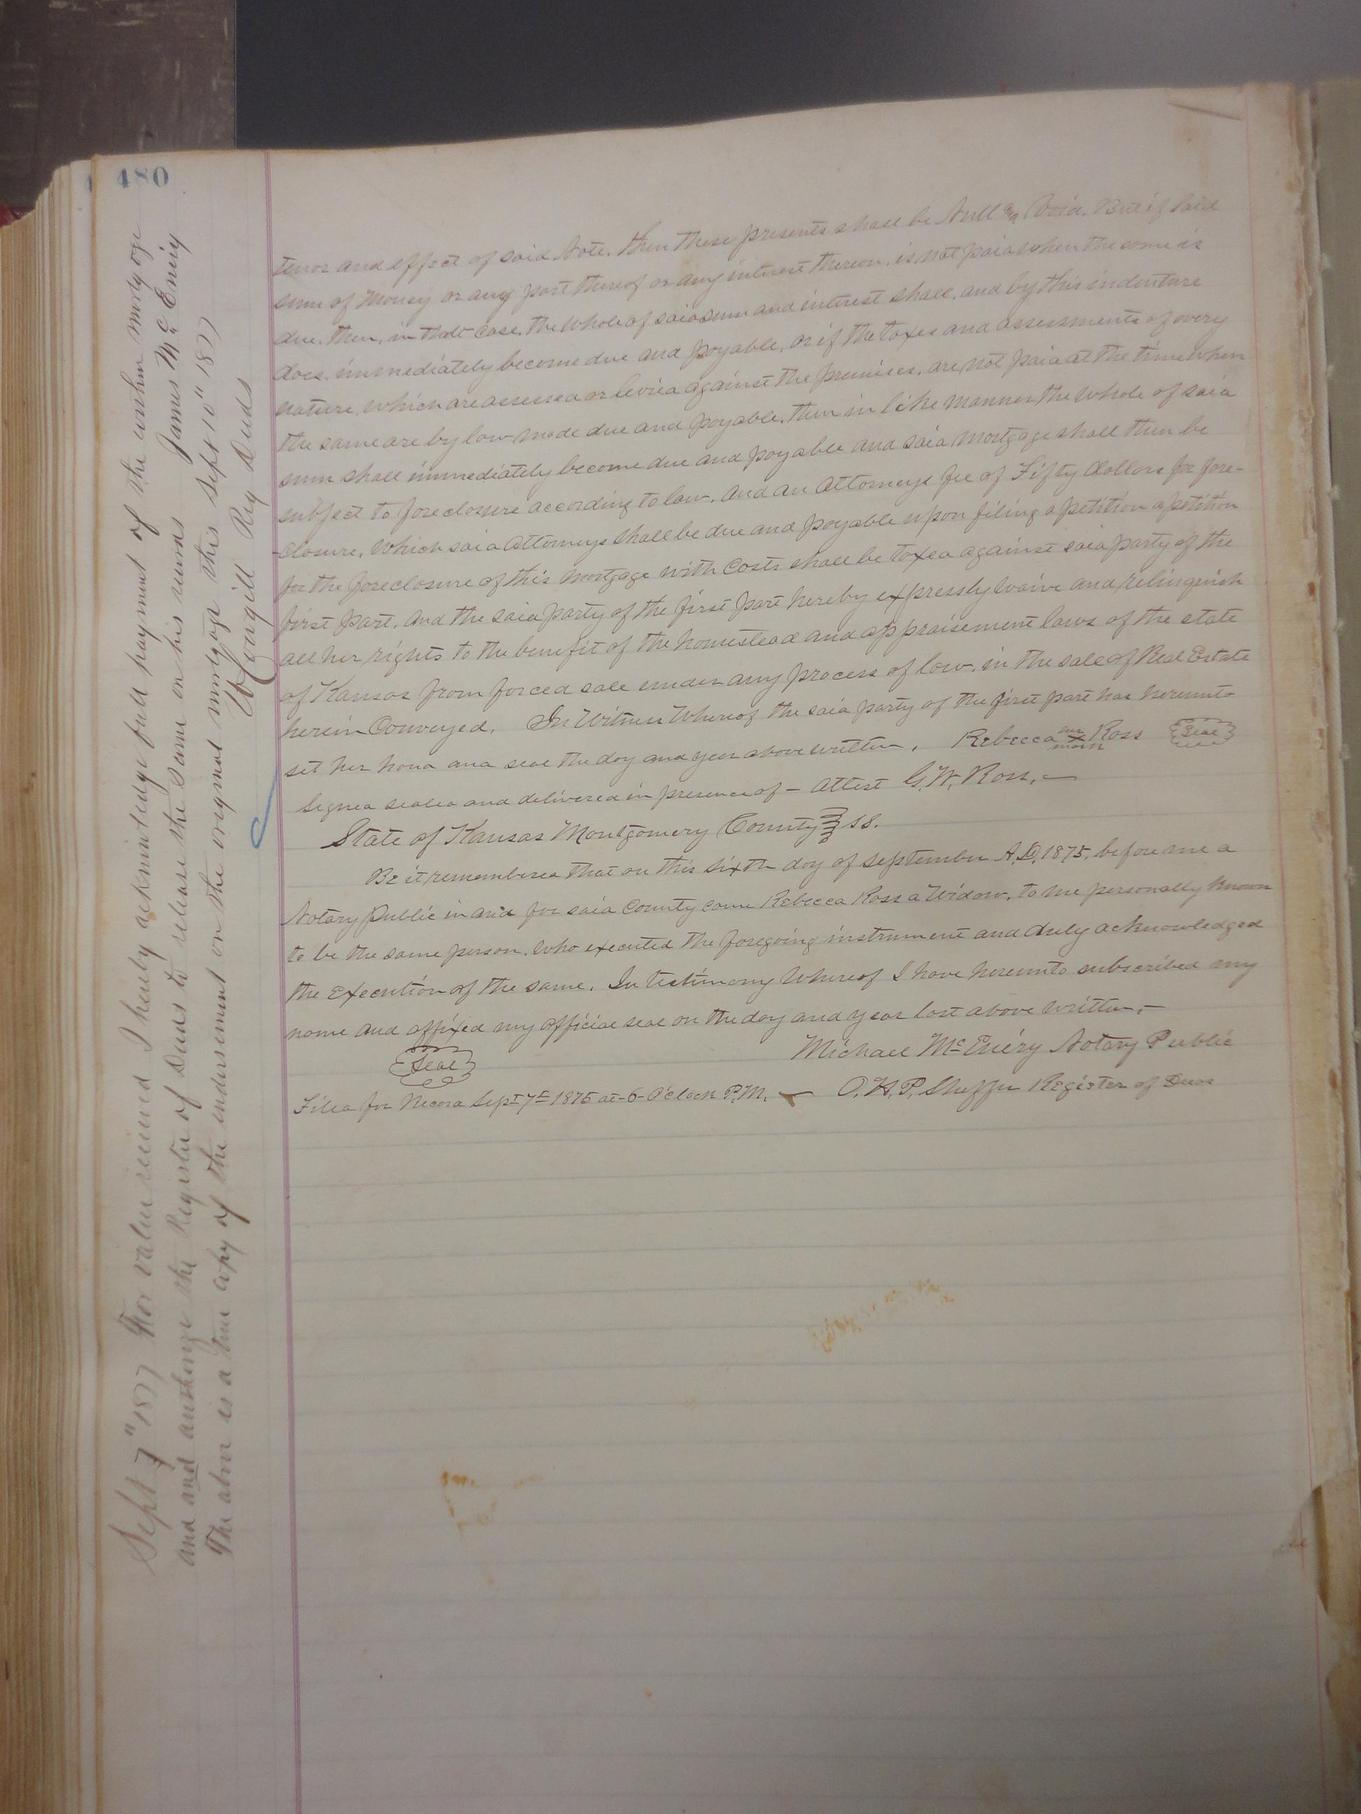 480
tenor and effect of said Note. then these presents shall be Null & Void. But if said
sum of Money or any part thereof or any interest thereon. is not paid when the same is
due. then, in that case, the whole of said sum and interest shall, and by this indenture
does. immediately become due and payable, or if the taxes and assessments of every
nature, which are assessed or levied against the premises, are not paid at the time when
the same are by law made due and payable, then in like manner the whole of said
sum shall immediately become due and payable and said mortgage shall then be
subject to foreclosure according to law. and an attorneys fee of Fifty dollars for fore-
closure, Which said attorneys shall be due and payable upon filing a petition a petition
for the foreclosure of this mortgage with costs shall be taxed against said party of the
first part. and the said party of the first part hereby expressly waive and relinquish
all her rights to the benefit of the homestead and appraisement laws of the state
of Kansas from forced sale under any process of law, in the sale of Real Estate
herein Conveyed. In Witness Whereof the said party of the first part has hereunto
set her hand and seal the day and year above written. Rebecca her X mark Ross (Seal)
Signed sealed and delivered in presence of — Attest G. W. Ross. —
State of Kansas Montgomery County } SS.
Be it remembered that on this sixth day of September A.D. 1875, before me a
Notary Public in and for said County came Rebecca Ross a Widow, to me personally known
to be the same person, who executed the foregoing instrument and duly acknowledged
the Execution of the same. In testimony Whereof I have hereunto subscribed my
name and affixed my official seal on the day and year last above written, —
Michael McEniry Notary Public
(Seal)
Filed for Record Sept 7th 1875 at 6 O'clock P.M. — O. H. P. Sheffer Register of Deeds
Sept 7" 1877 For value received I hereby acknowledge full payment of the within mortgage
and and authorize the Register of Deeds to release the same on his records James McEniry
The above is a true copy of the endorsement on the original mortgage this Sept 10" 1877
Cowgill Reg Deeds